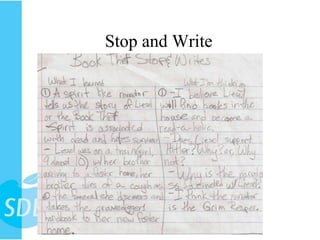 Stop and Write
Book Thief Stop & Writes
What I learned
What I'm thinking
① A spirit like narrator
tells us the story of Liesel
or the Book Thief
Spirit is associated
with death and hates survivors
- Liesel goes on a train, girl,
9 almost 10 w/ her brother
going to a foster home, her
brother dies of a cough
② The funeral she
takes the gravediggers
handbook to her new foster
home.
① - I believe Liesel
will find books in the
house and become a
read-a-holic.
- Does Liesel support
Hitler? Why or Why
not?
- Why is the
so with Liesel?
- I think the narrator
is the Grim Reaper.
SDE